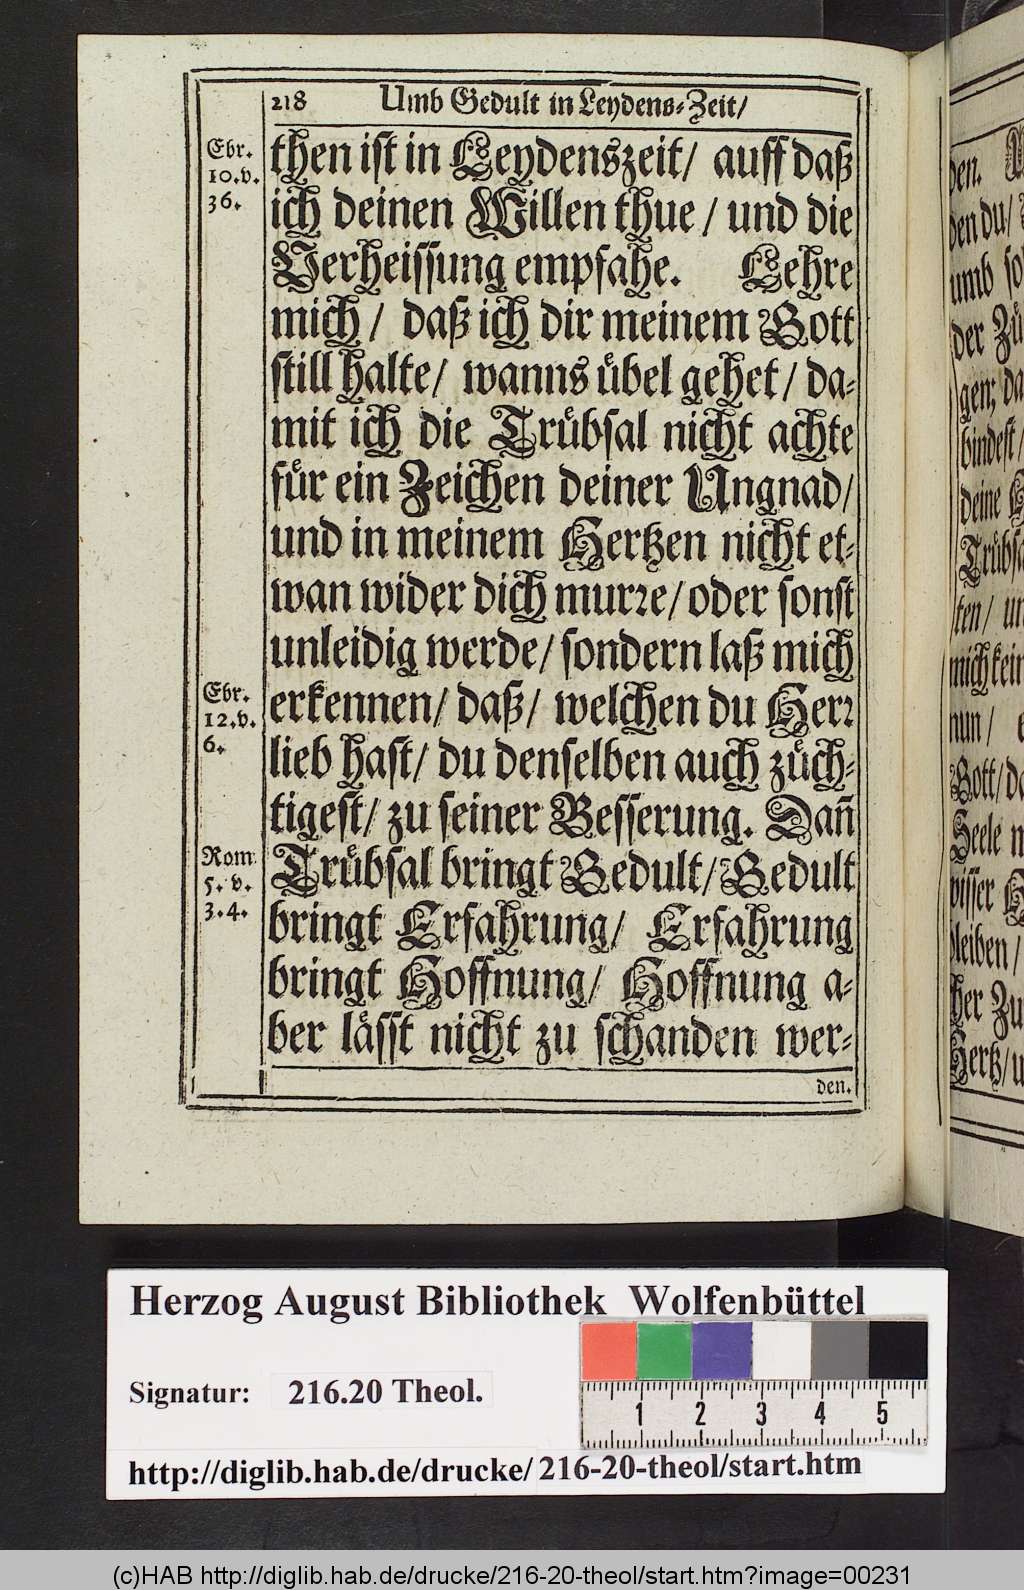 218 Umb Gedult in Leydens-Zeit/
Ebr.
10.v.
36.
then ist in Leydenszeit/ auff daß
ich deinen Willen thue / und die
Verheissung empfahe. Lehre
mich / daß ich dir meinem Gott
still halte/ wanns uͤbel gehet / da-
mit ich die Truͤbsal nicht achte
fuͤr ein Zeichen deiner Ungnad/
und in meinem Hertzen nicht et-
wan wider dich murꝛe/ oder sonst
unleidig werde/ sondern laß mich
Ebr.
12.v.
6.
erkennen/ daß/ welchen du Herꝛ
lieb hast/ du denselben auch zuͤch-
tigest/ zu seiner Besserung. Dañ
Rom.
5. v.
3.4.
Truͤbsal bringt Gedult/ Gedult
bringt Erfahrung/ Erfahrung
bringt Hoffnung/ Hoffnung a-
ber laͤsst nicht zu schanden wer-
den.
den.
den du/
umb
der
gen; da
bindest/
deine
ten/
mich kein
nun /
Gott/
Seele
wisser
bleiben/
her Zu
Hertz/
Herzog August Bibliothek Wolfenbüttel
Signatur: 216.20 Theol.
1 2 3 4 5
http://diglib.hab.de/drucke/ 216-20-theol/start.htm
(c)HAB http://diglib.hab.de/drucke/216-20-theol/start.htm?image=00231